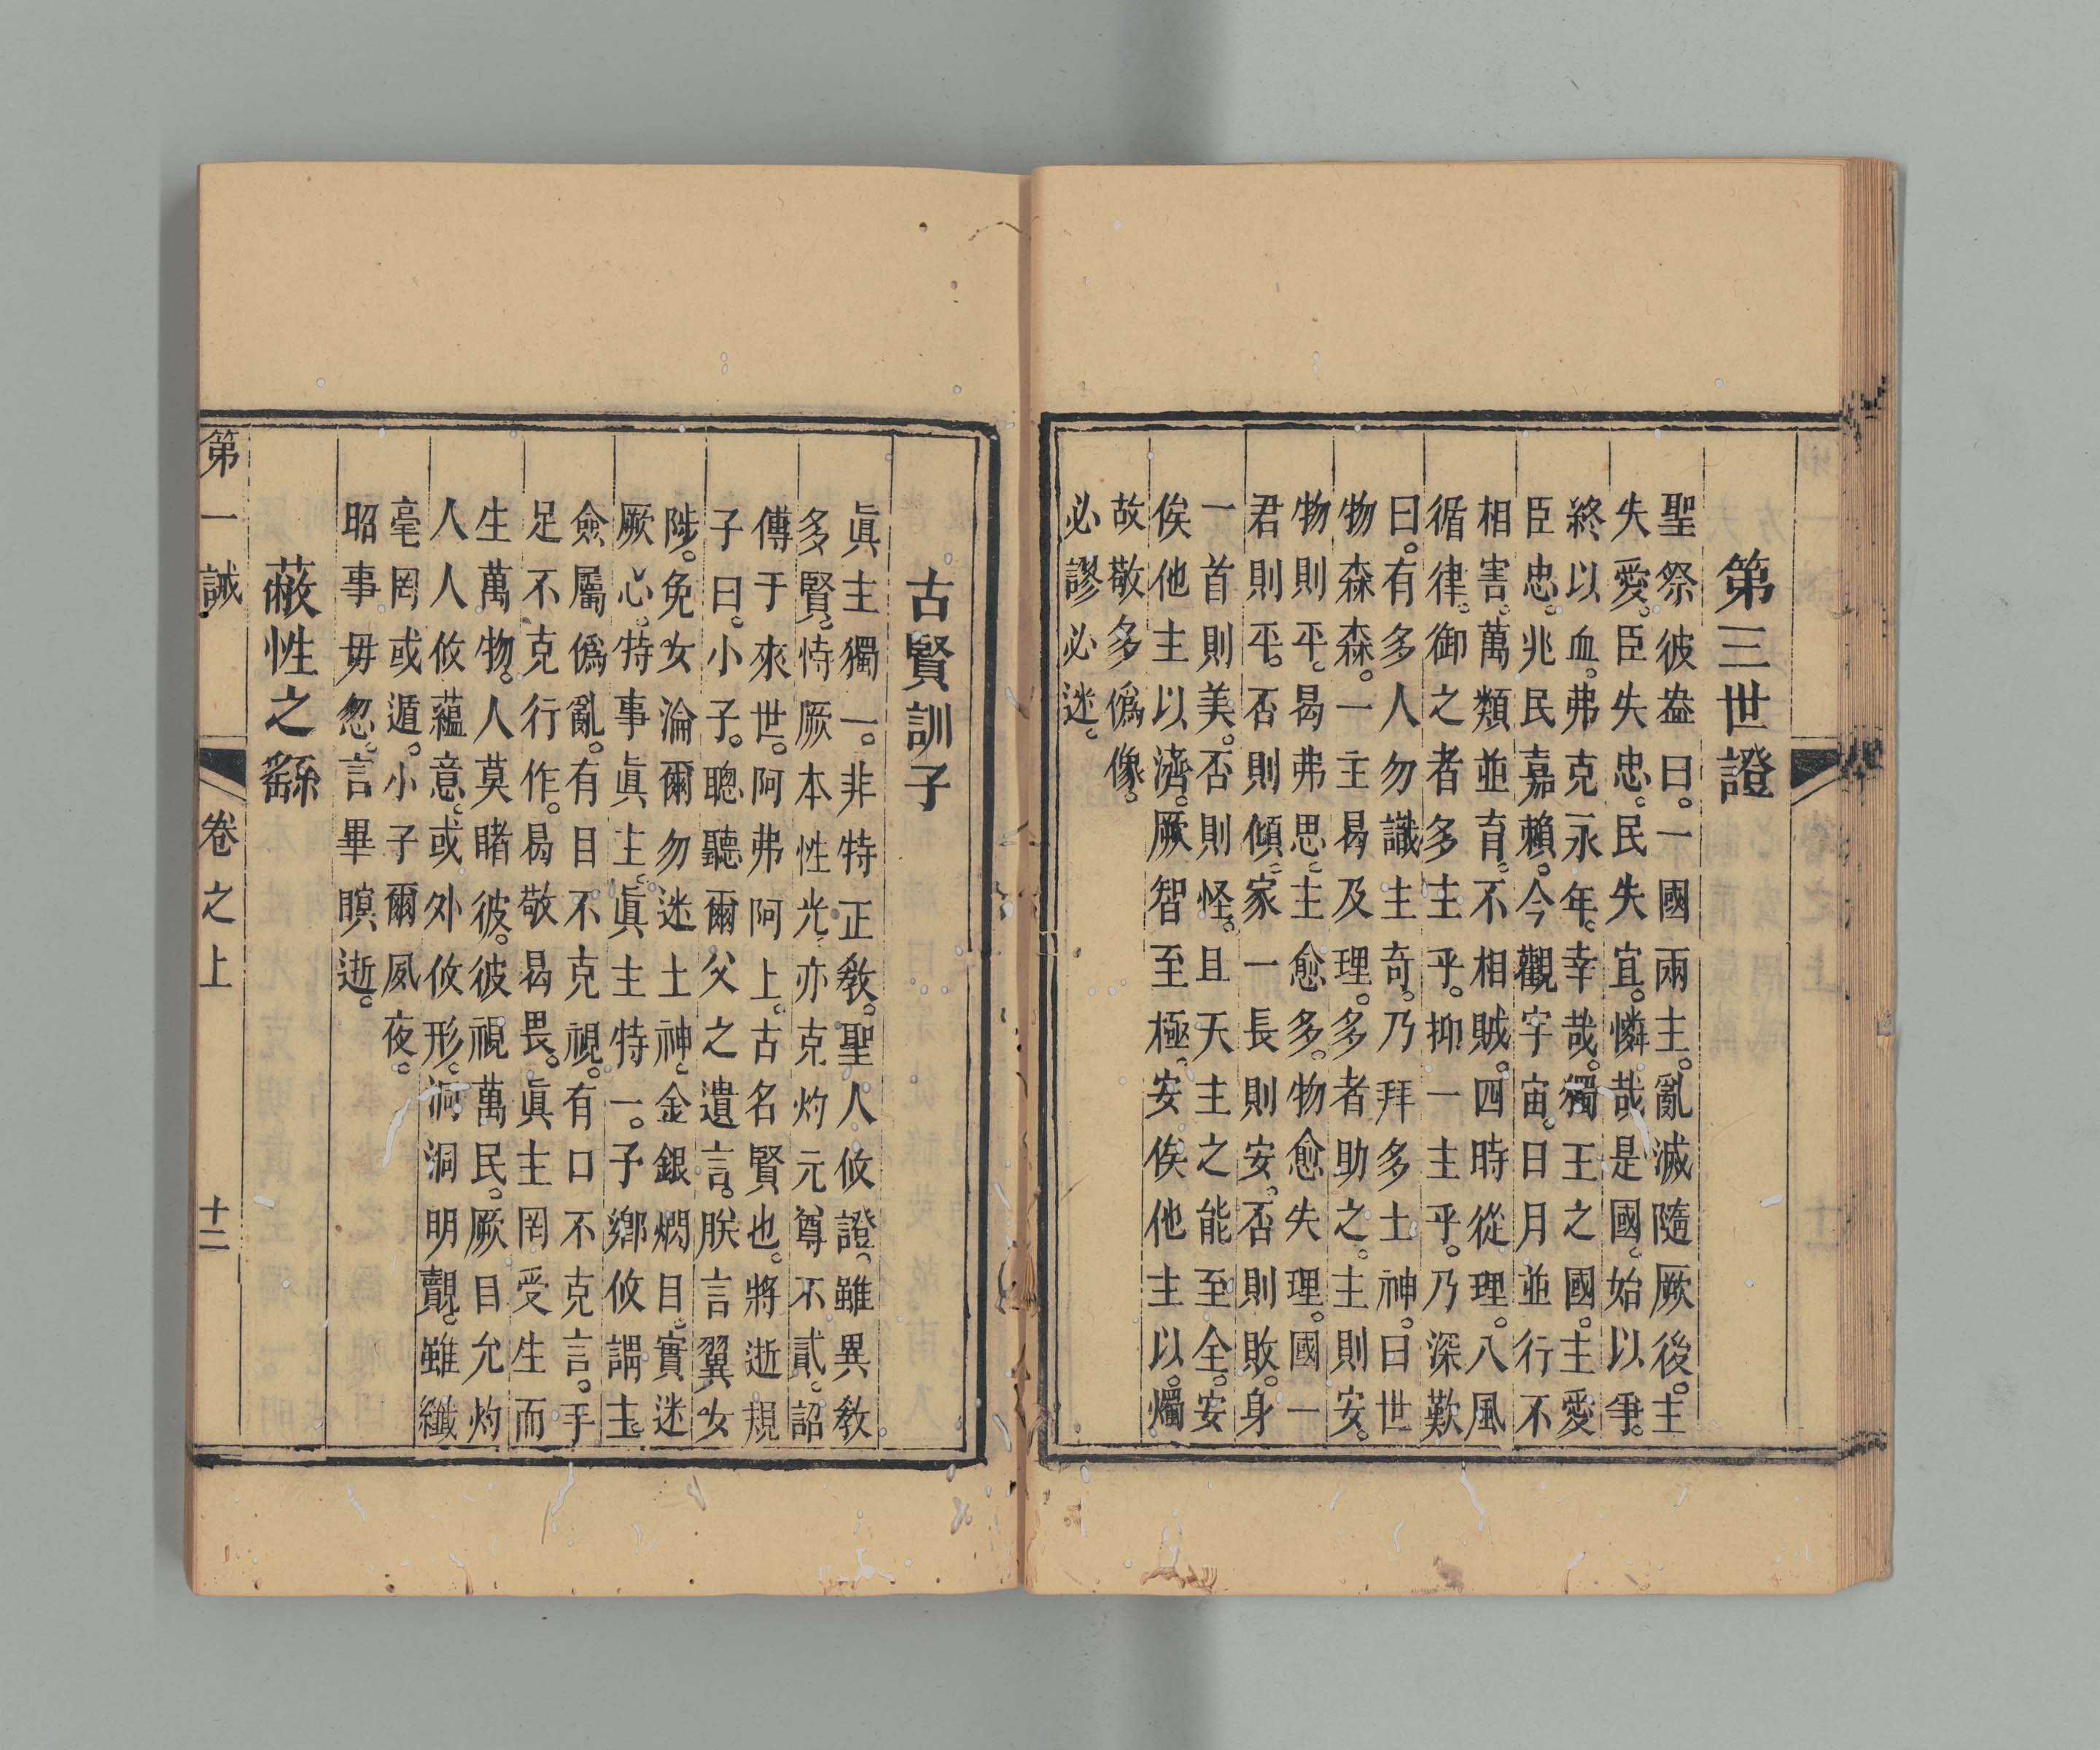 第三世證
聖祭彼盎曰。一國兩主。亂滅隨厥後。主
失愛。臣失忠。民失宜。憐哉是國。始以爭。
終以血。弗克永年。幸哉。獨王之國。主愛
臣忠。兆民嘉賴。今觀宇宙。日月並行不
相害。萬類並育。不相賊。四時從理。八風
循律。御之者多主乎。抑一主乎。乃深歎
曰。有多人勿識主奇。乃拜多土神。曰世
物森森。一主曷及理。多者助之。主則安。
物則平。曷弗思。主愈多。物愈失理。國一
君則平。否則傾。家一長則安。否則敗。身
一首則美。否則怪。且天主之能至全。安
俟他主以濟。厥智至極。安俟他主以燭。
故敬多僞像。
必謬必迷。
古賢訓子
眞主獨一。非特正教。聖人攸證。雖異教
多賢。恃厥本性光。亦克灼元尊不貳。詔
傳于來世。阿弗阿上。古名賢也。將逝規
子曰。小子。聰聽爾父之遺言。朕言翼女
陟。免女淪爾勿迷土神。金銀燜目。實迷
厥心。特事眞主。眞主特一。予鄉攸謂主
僉屬僞亂。有目不克視。有口不克言。手
足不克行作。曷敬曷畏。眞主罔受生而
生萬物。人莫睹彼。彼視萬民。厥目允灼
人人攸蘊意。或外攸形。洞洞明覿。雖纖
毫罔或遁。小子爾夙夜。
昭事毋忽。言畢瞑逝。
蔽性之繇
第一誡 卷之上 十二